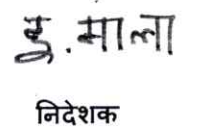 इ. माला
निदेशक